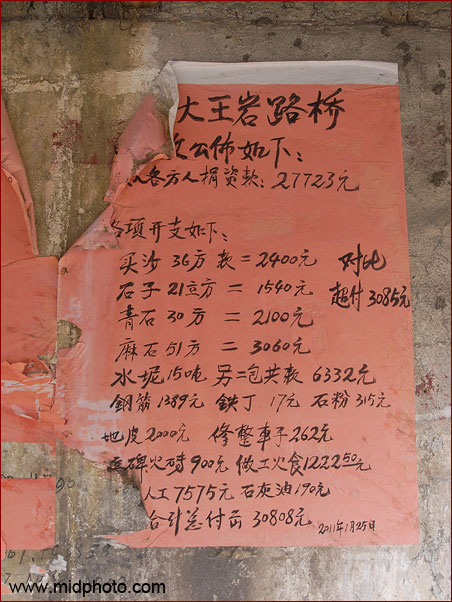 大王岩路桥
公佈如下：
各方人捐资款：27723元
各项开支如下：
买沙 36方 款＝2400元
石子 21立方 ＝ 1540元
青石 30方 ＝ 2100元
麻石 51方 ＝ 3060元
对比
超付 3085元
水坭 15吨 另二包共款 6332元
鋼筋 1389元 鉄丁 17元 石粉 315元
地皮 2000元 修整車子 262元
碑火時 900元 做工火食 1222.50元
人工 7575元 石灰油 190元
合计总付出 30808元
2011年1月25日
www.midphoto.com